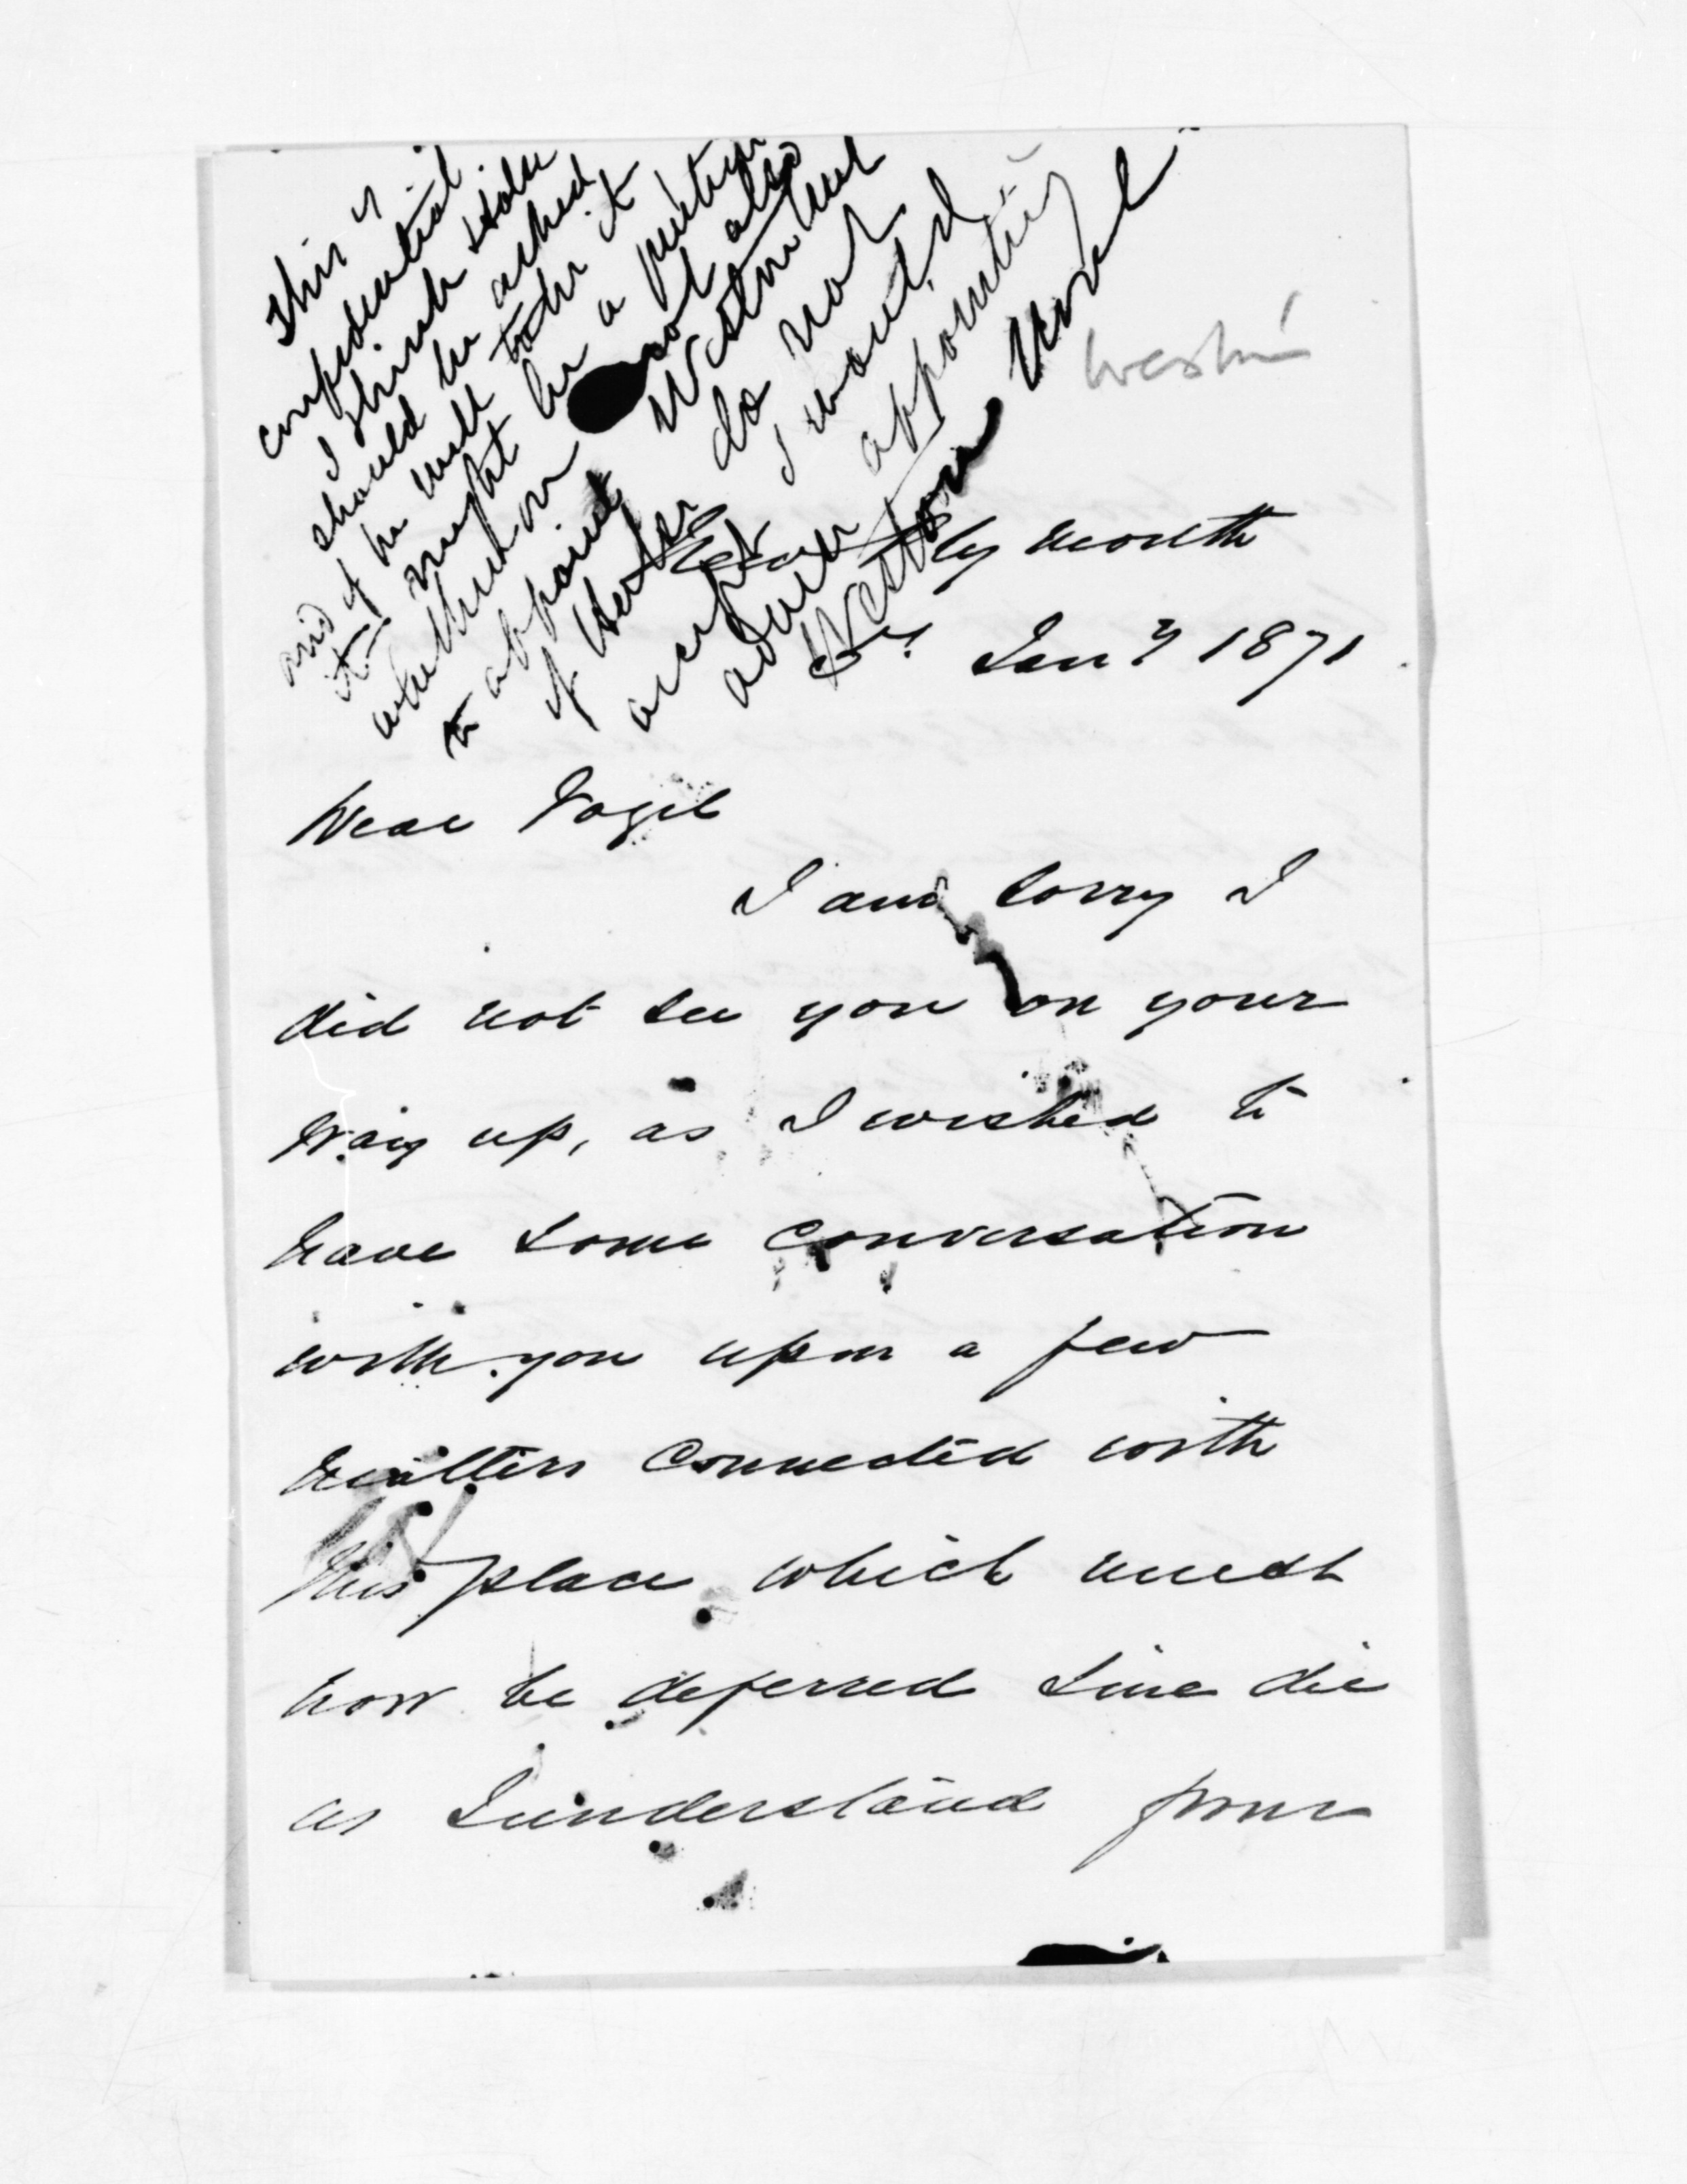 This is
confidential
I think Holm
should be asked
and if he will take it
it might be a question
whether or not also
to appoint Westru
if Herbe do not
accept I would
advise appointing
Weston
Vogel
by mouth
Jany 1871
Dear Vogel
I am sorry I
did not see you on your
way up, as I wished to
have some conversation
with you upon a few
matters connected with
this place which must
now be deferred sine die
as I understand from